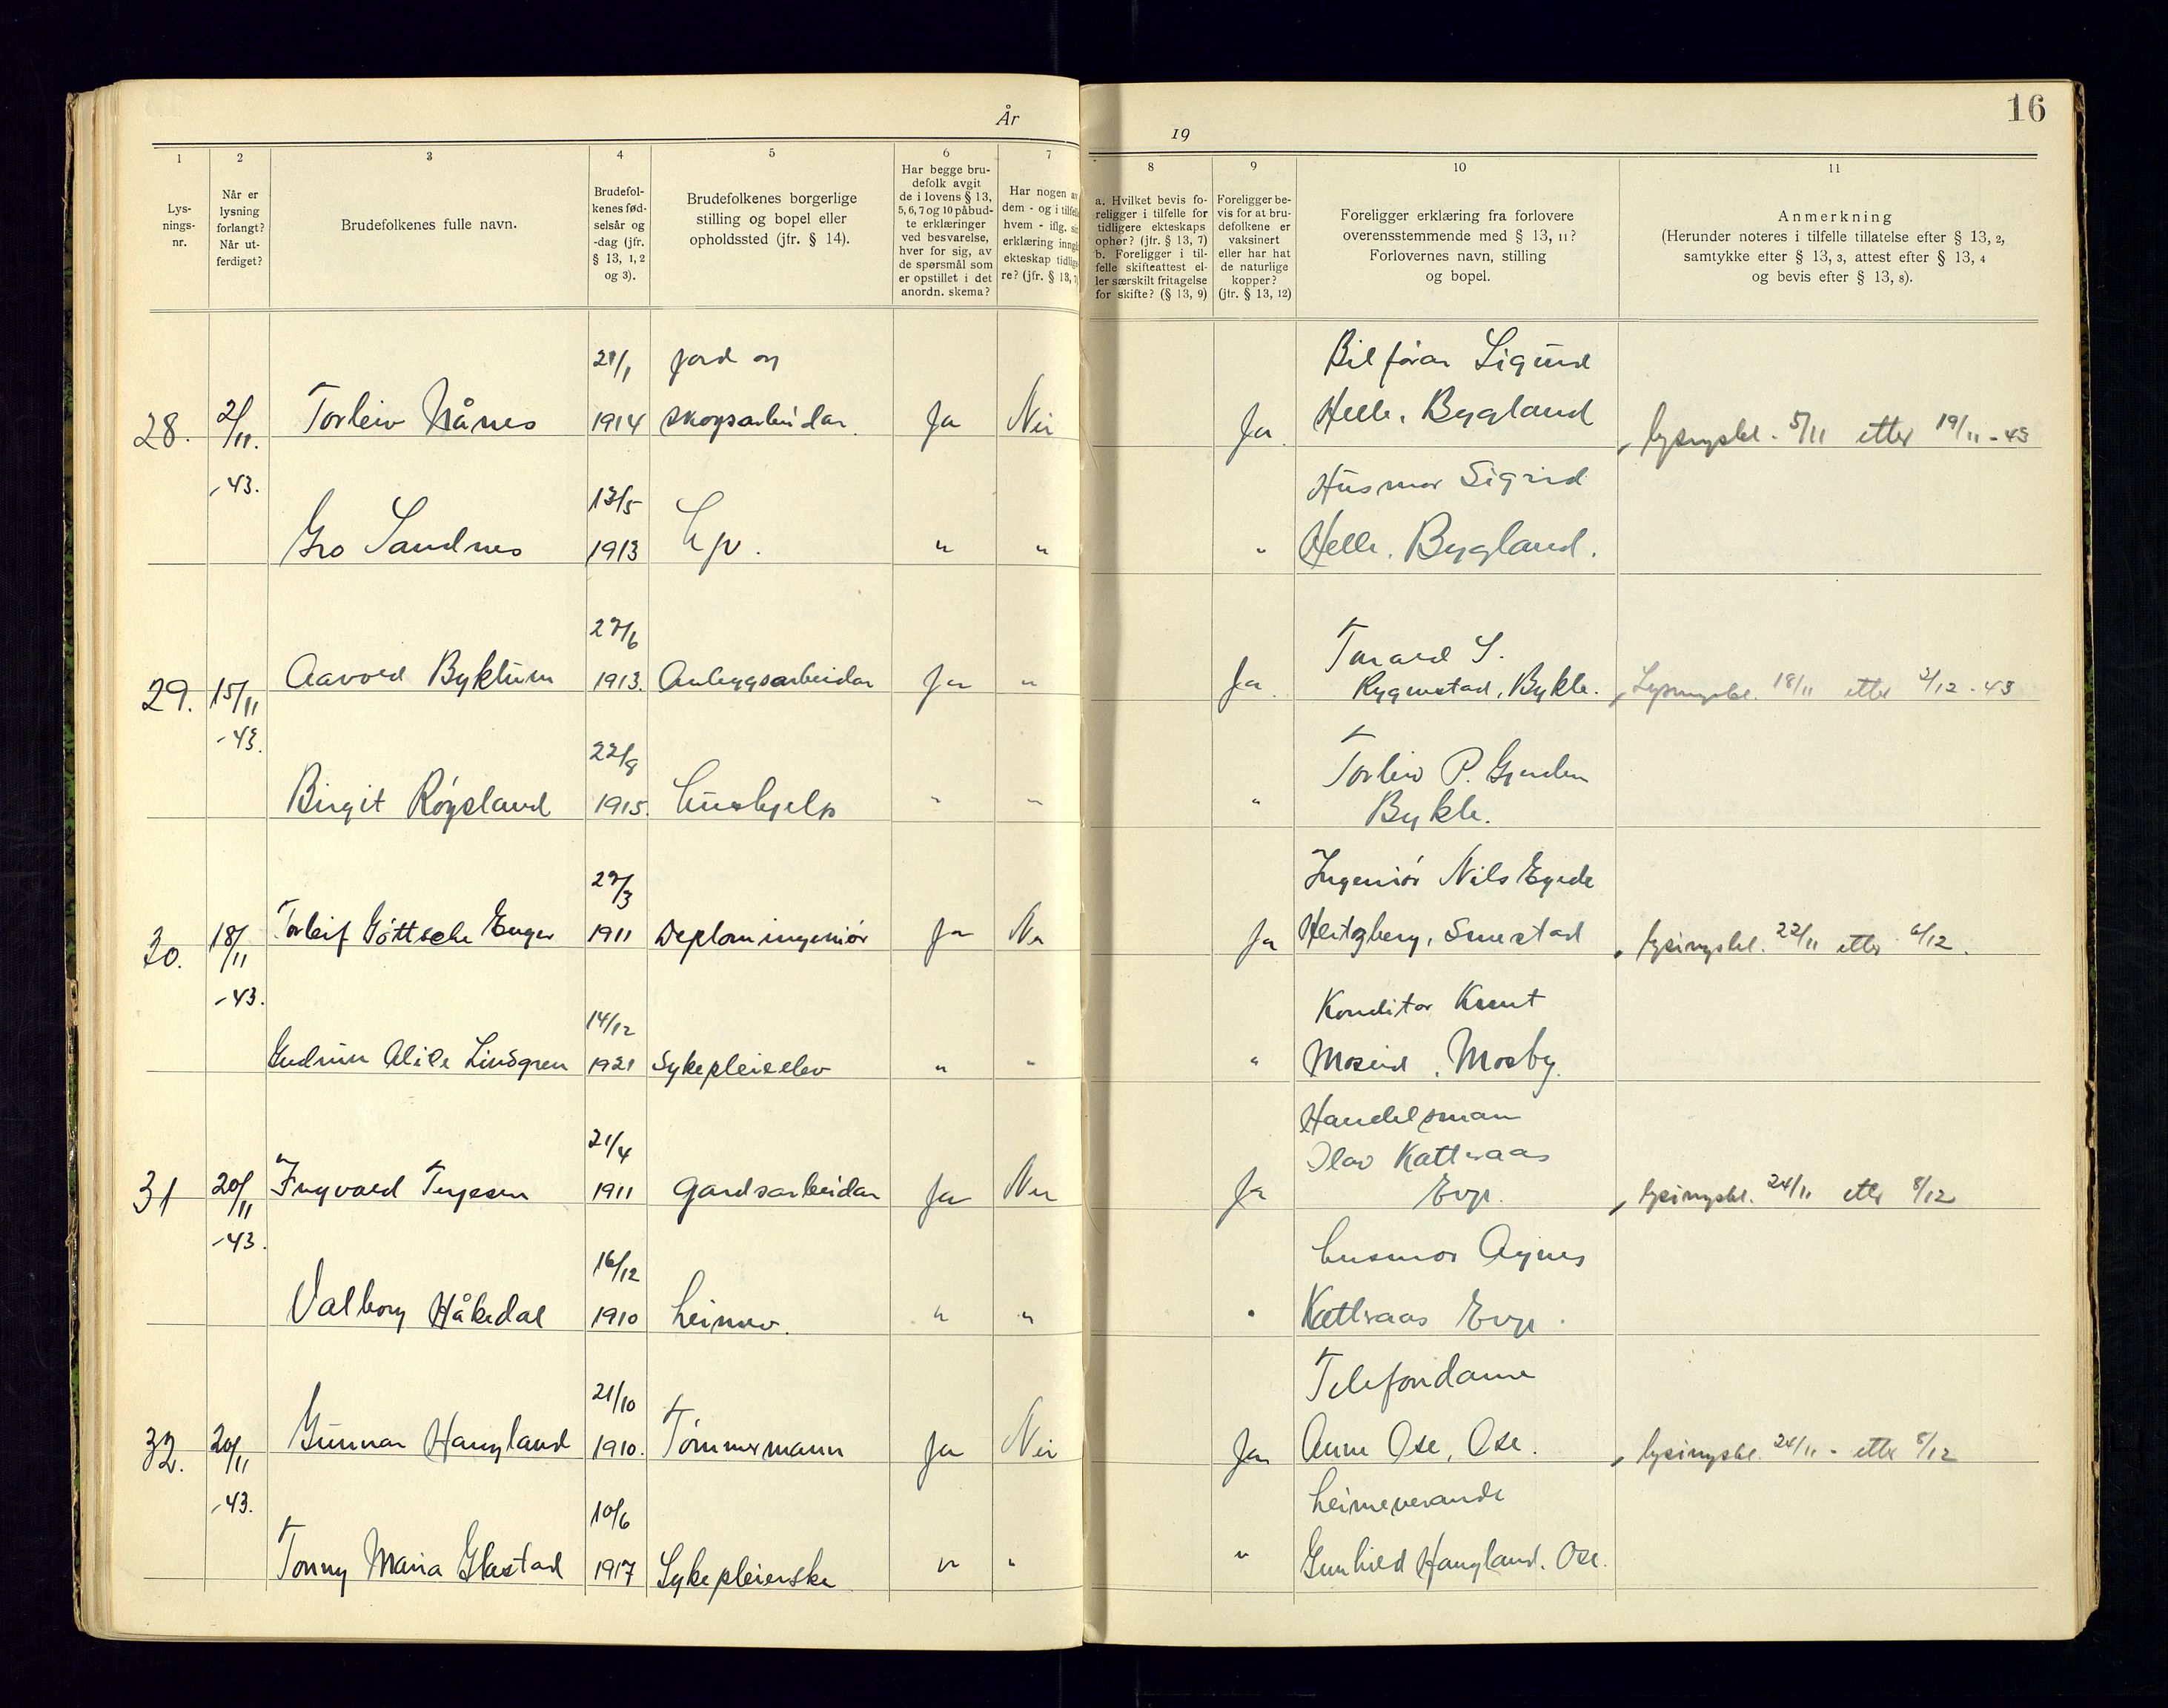 År
19
16
1
2
3
4
5
6
7
8
9
10
11
Lys-
nings-
nr.
Når er
lysning
forlangt?
Når ut-
ferdiget?
Brudefolkenes fulle navn.
Brudefol-
kenes fød-
selsår og
-dag (jfr.
§ 13, 1, 2
og 3).
Brudefolkenes borgerlige
stilling og bopel eller
opholdssted (jfr. § 14).
Har begge bru-
defolk avgit
de i lovens § 13,
5, 6, 7 og 10 påbud-
te erklæringer
ved besvarelse,
hver for sig, av
de spørsmål som
er opstillet i det
anordn. skema?
Har nogen av
dem - og i tilfelle
hvem - iflg. sin
erklæring inngå
ekteskap tidlige
re? (jfr. § 13, 7)
a. Hvilket bevis fo-
religger i tilfelle for
tidligere ekteskaps
ophør? (jfr. § 13, 7)
b. Foreligger i til-
felle skifteattest el-
ler særskilt fritagelse
for skifte? (§ 13, 9)
Foreligger be-
vis for at bru-
defolkene er
vaksinert
eller har hat
de naturlige
kopper?
(jfr. § 13, 12)
Foreligger erklæring fra forlovere
overensstemmende med § 13, 11?
Forlovernes navn, stilling
og bopel.
Anmerkning
(Herunder noteres i tilfelle tillatelse efter § 13, 2,
samtykke efter § 13, 3, attest efter § 13, 4
og bevis efter § 13, 8).
21/1 jord og Bilførar Sigurd
28. 2/11. Torleiv Nånes 1914 skogsarbeidar. Ja Nei Ja. Helle, Bygland lysingsbl. 5/11 etter 19/11-43
-43. 13/5 Husmor Sigrid
Gro Sandnes 1913 hv. " " " Helle. Bygland.
27/6 Tarald S.
29. 15/11 Aavold Byklum 1913. Anleggsarbeidar Ja " Ja. Rygnestad, Bykle. Lysingsbl. 18/11 etter 2/12-43
-43. 22/8 Torleiv P. Gjerden
Birgit Røysland 1915. hushjelp " " " Bykle.
27/3 Ingeniør Nils Egede
30. 18/11 Torleif Göttsche Enger 1911 Deplomingeniør Ja Nei Ja Hertzberg, Smestad lysingsbl. 22/11 etter 6/12.
-43. 14/12 Konditor Knut
Gudrun Alice Lindgren 1921 Sykepleieelev " " " Moseid, Mosby.
21/4 Handelsman
Olav Kattraas
31 20/11 Ingvald Terjesen 1911 Gardsarbeidar Ja Nei Ja Evje. lysingsbl. 24/11 etter 8/12
-43. 16/12 husmor Agnes
Valborg Håkedal 1910 heimev. " " " Kattraas Evje.
21/10 Telefondame
32. 20/11 Gunnar Haugland 1910. Tømmermann Ja Nei Ja Anne Ose, Ose. lysingsbl. 24/11 - etter 8/12
-43. 10/6 heimeverande
Tonny Maria Glastad 1917 Sykepleierske " " " Gunhild Haugland. Ose.